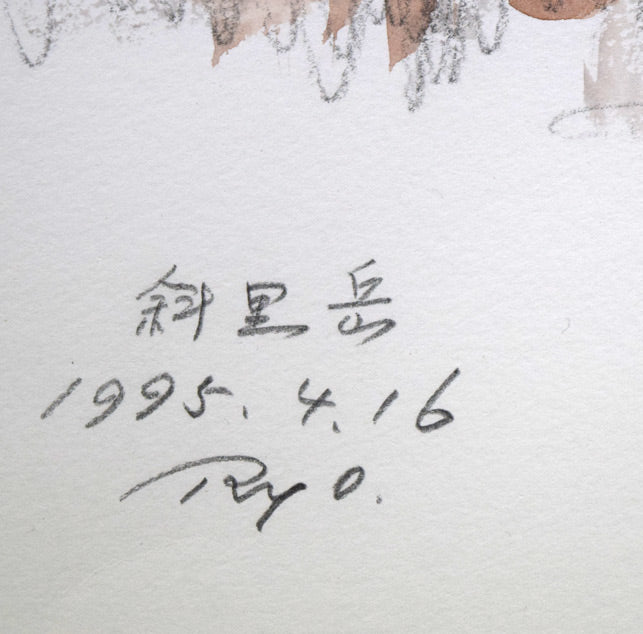 斜里岳
1995.4.16
Ry O.